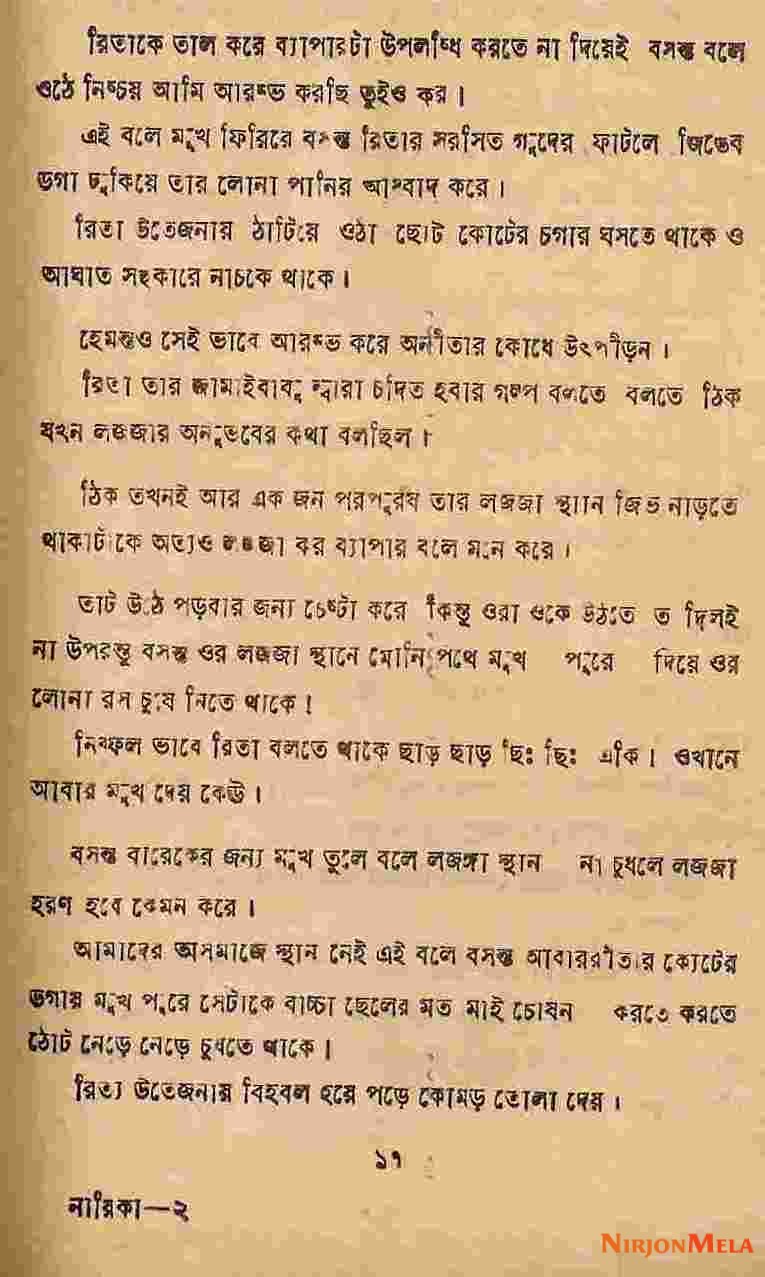 রিতাকে তাল করে ব্যাপারটা উপলব্ধি করতে না দিয়েই বসন্ত বলে
ওঠে নিশ্চয় আমি আরম্ভ করছি তুইও কর।
এই বলে মুখ ফিরিরে বসন্ত রিতার সরসিত গুদের ফাটলে জিভের
ডগা ঢুকিয়ে তার লোনা পানির আস্বাদ করে।
রিতা উতেজনার ঠাটিয়ে ওঠা ছোট কোটের চগার ঘসতে থাকে ও
আঘাত সহকারে নাচকে থাকে।
হেমন্তও সেই ভাবে আরম্ভ করে অনীতার কোধে উৎপীড়ন।
রিতা তার জামাইবাবু দ্বারা চদিত হবার গল্প বলতে বলতে ঠিক
যখন লজ্জার অনুভবের কথা বলছিল।
ঠিক তখনই আর এক জন পরপুরষ তার লজ্জা স্থানে জিভ নাড়তে
থাকাটাকে অত্যও লজ্জা কর ব্যাপার বলে মনে করে।
তাট উঠে পড়বার জন্য চেষ্টা করে কিন্তু ওরা ওকে উঠতে ত দিলই
না উপরন্তু বসন্ত ওর লজ্জা স্থানে যোনিপথে মুখ পুরে দিয়ে ওর
লোনা রস চুষে নিতে থাকে!
নিষ্ফল ভাবে রিতা বলতে থাকে ছাড় ছাড় ছিঃ ছিঃ একি। ওখানে
আবার মুখ দেয় কেউ।
বসন্ত বারেকের জন্য মুখ তুলে বলে লজঙ্গা স্থান না চুষলে লজ্জা
হরণ হবে কেমন করে।
আমাদের অসমাজে স্থান নেই এই বলে বসন্ত আবাররীতার কোটের
ডগায় মুখ পুরে সেটাকে বাচ্চা ছেলের মত মাই চোষন করতে করতে
ঠোট নেড়ে নেড়ে চুষতে থাকে।
রিত্য উতেজনায় বিহবল হয়ে পড়ে কোমড় তোলা দেয়।
১৭
নায়িকা—২
NIRJONMELA